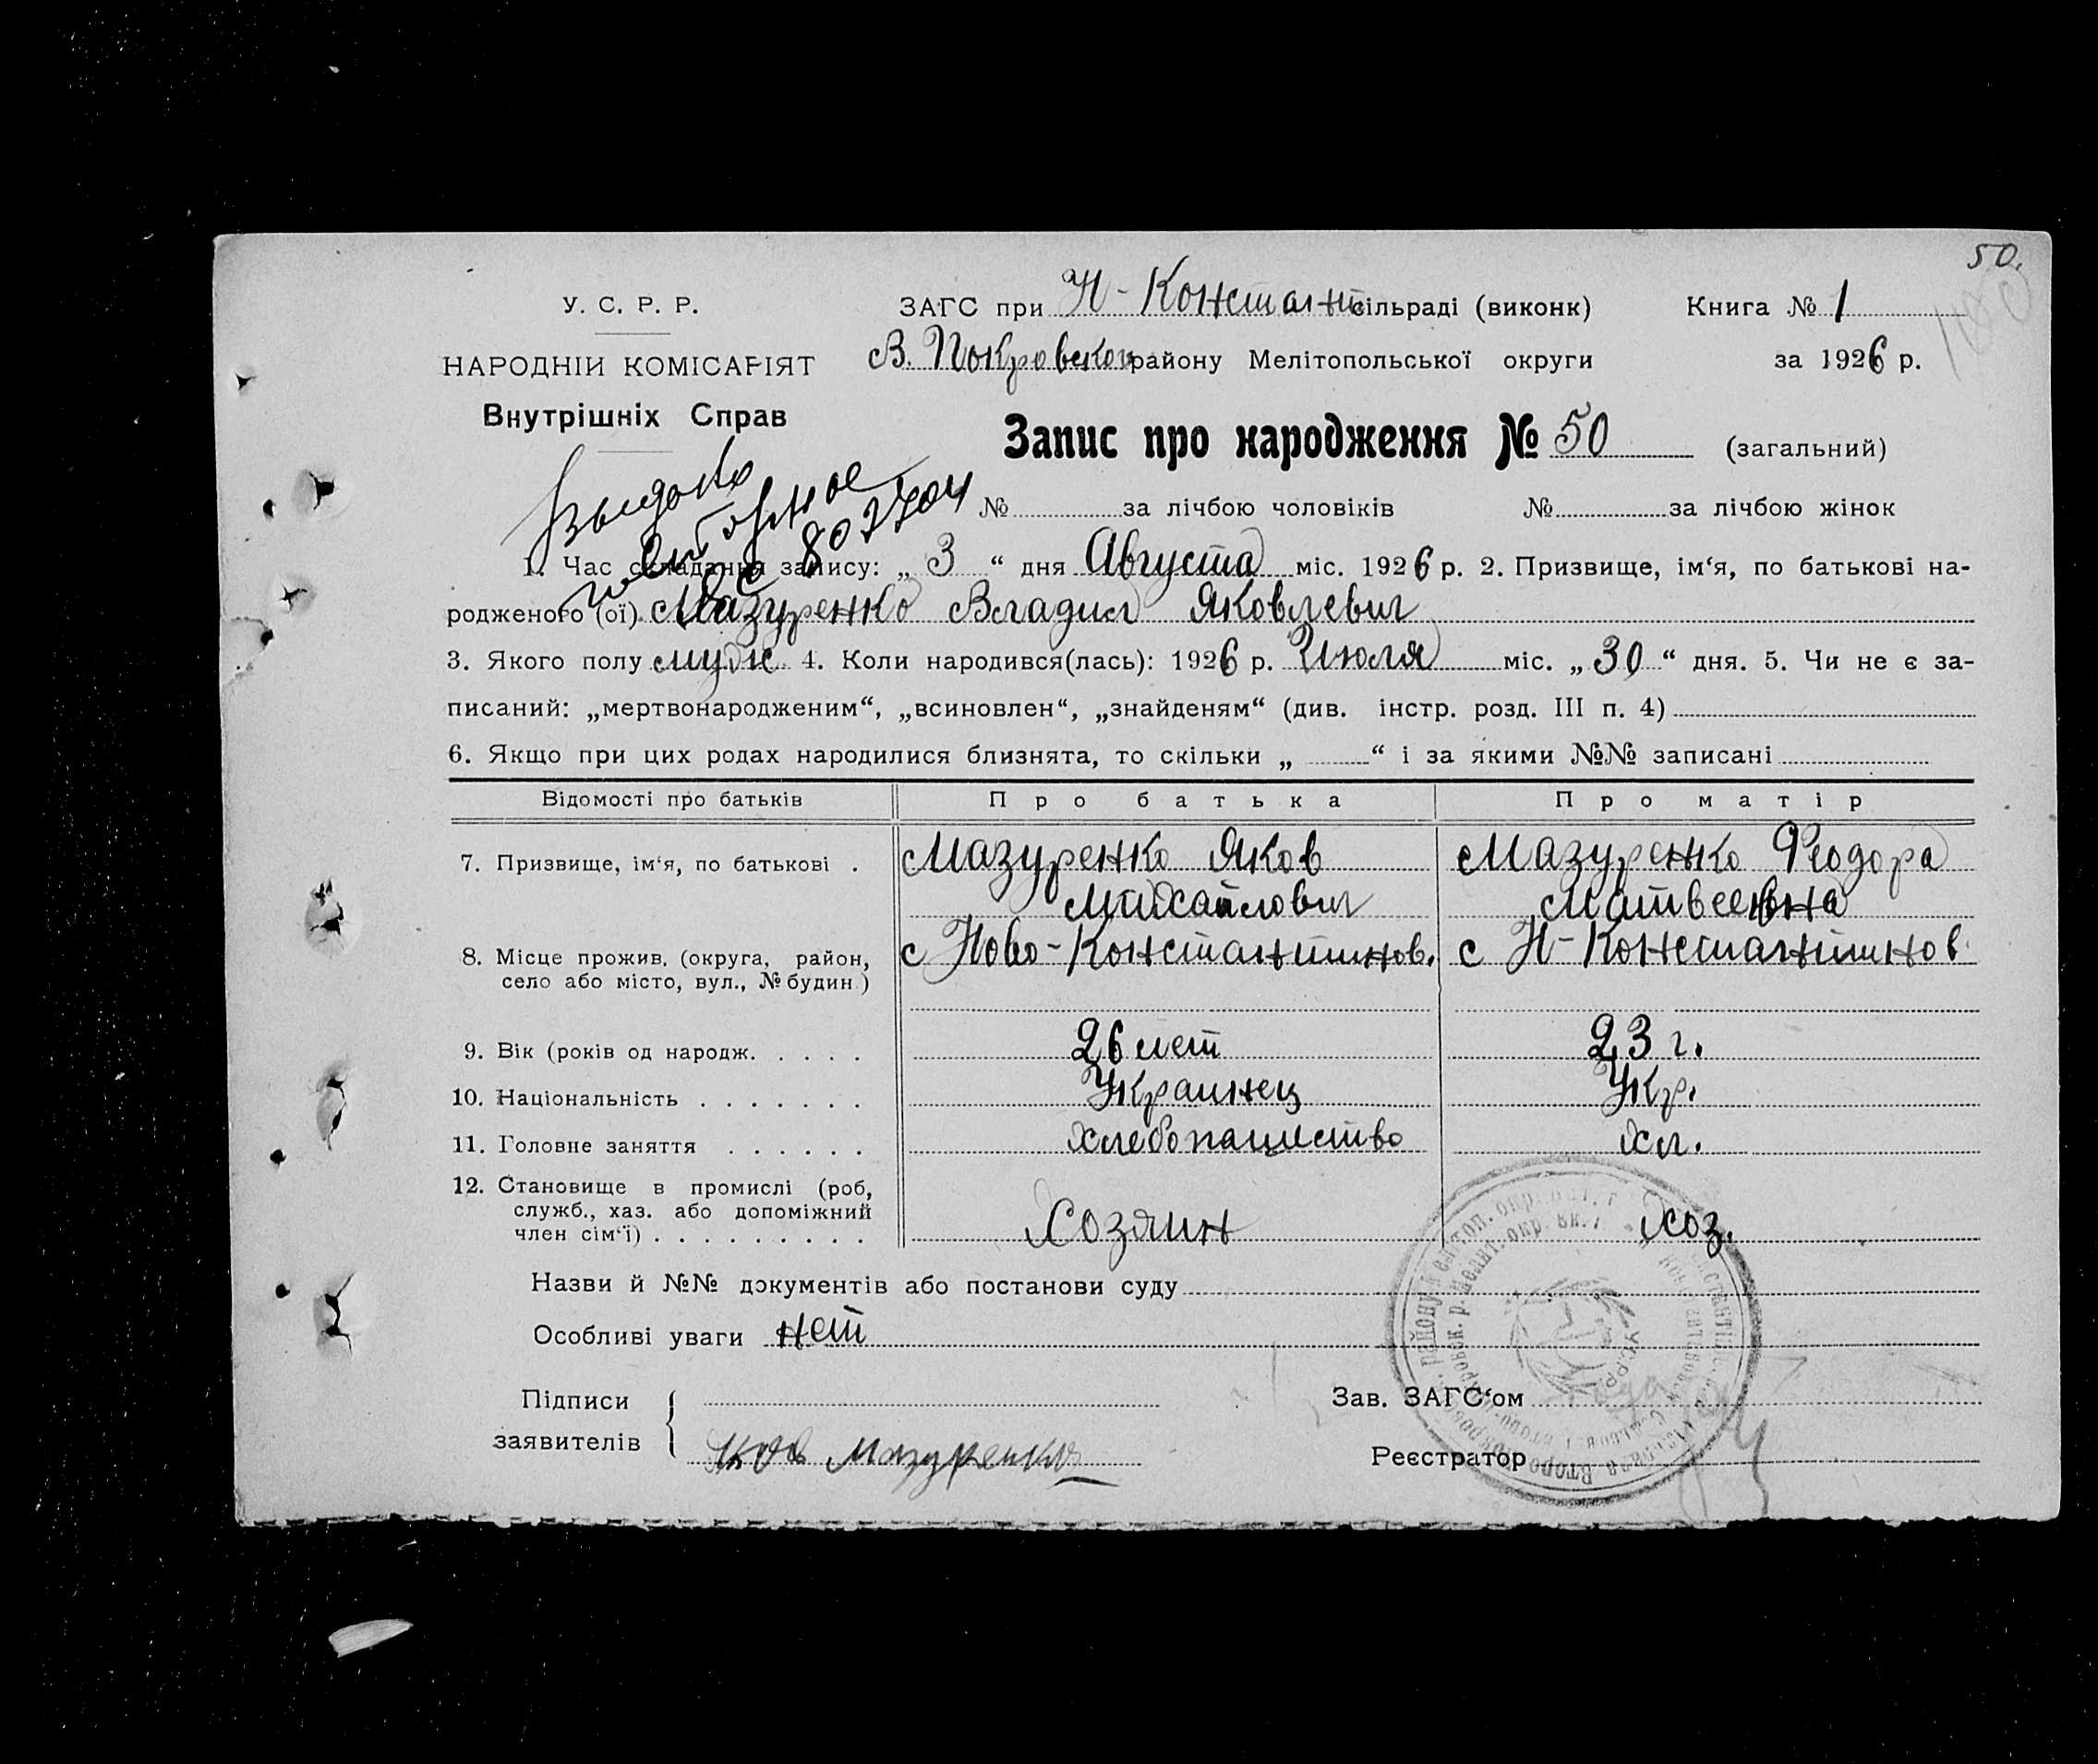 50.
У. С. Р. Р.
ЗАГС при Н-Констант сільраді (виконк)
Книга № 1
НАРОДНІЙ КОМІСАРІЯТ
В. Покровской району Мелітопольської округи
за 1926 р.
Внутрішніх Справ
Запис про народження № 50 (загальний)
№ за лічбою чоловіків № за лічбою жінок
Выдано
повторное
8027704
1. Час складання запису: „ 3 “ дня Августа міс. 1926 р. 2. Призвище, ім‘я, по батькові на-
родженого (ої) Мазуренко Владил Яковлевич
3. Якого полу муж 4. Коли народився(лась): 1926 р. Июля міс. „ 30 “ дня. 5. Чи не є за-
писаний: „мертвонародженим“, „всиновлен“, „знайденям“ (див. інстр. розд. III п. 4)
6. Якщо при цих родах народилися близнята, то скільки „ “ і за якими №№ записані
Відомості про батьків Про батька Про матір
7. Призвище, ім‘я, по батькові . Мазуренко Яков Мазуренко Феодора
Михайлович Матвеевна
8. Місце прожив. (округа, район, с Ново-Константинов. с Н-Константинов
село або місто, вул., № будин.)
9. Вік (років од народж. . . . . 26 лет 23 г.
10. Національність . . . . . . . Украинец Укр.
11. Головне заняття . . . . . . Хлебопашество Хл.
12. Становище в промислі (роб,
служб., хаз. або допоміжний
член сім‘ї) . . . . . . . . . Хозяин Хоз.
Назви й №№ документів або постанови суду
Особливі уваги нет
Підписи
заявителів
Яков Мазуренко
Зав. ЗАГС‘ом
Реєстратор